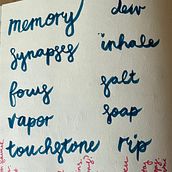 memory
synapses
focus
vapor
touchstone
dew
inhale
salt
soap
rip